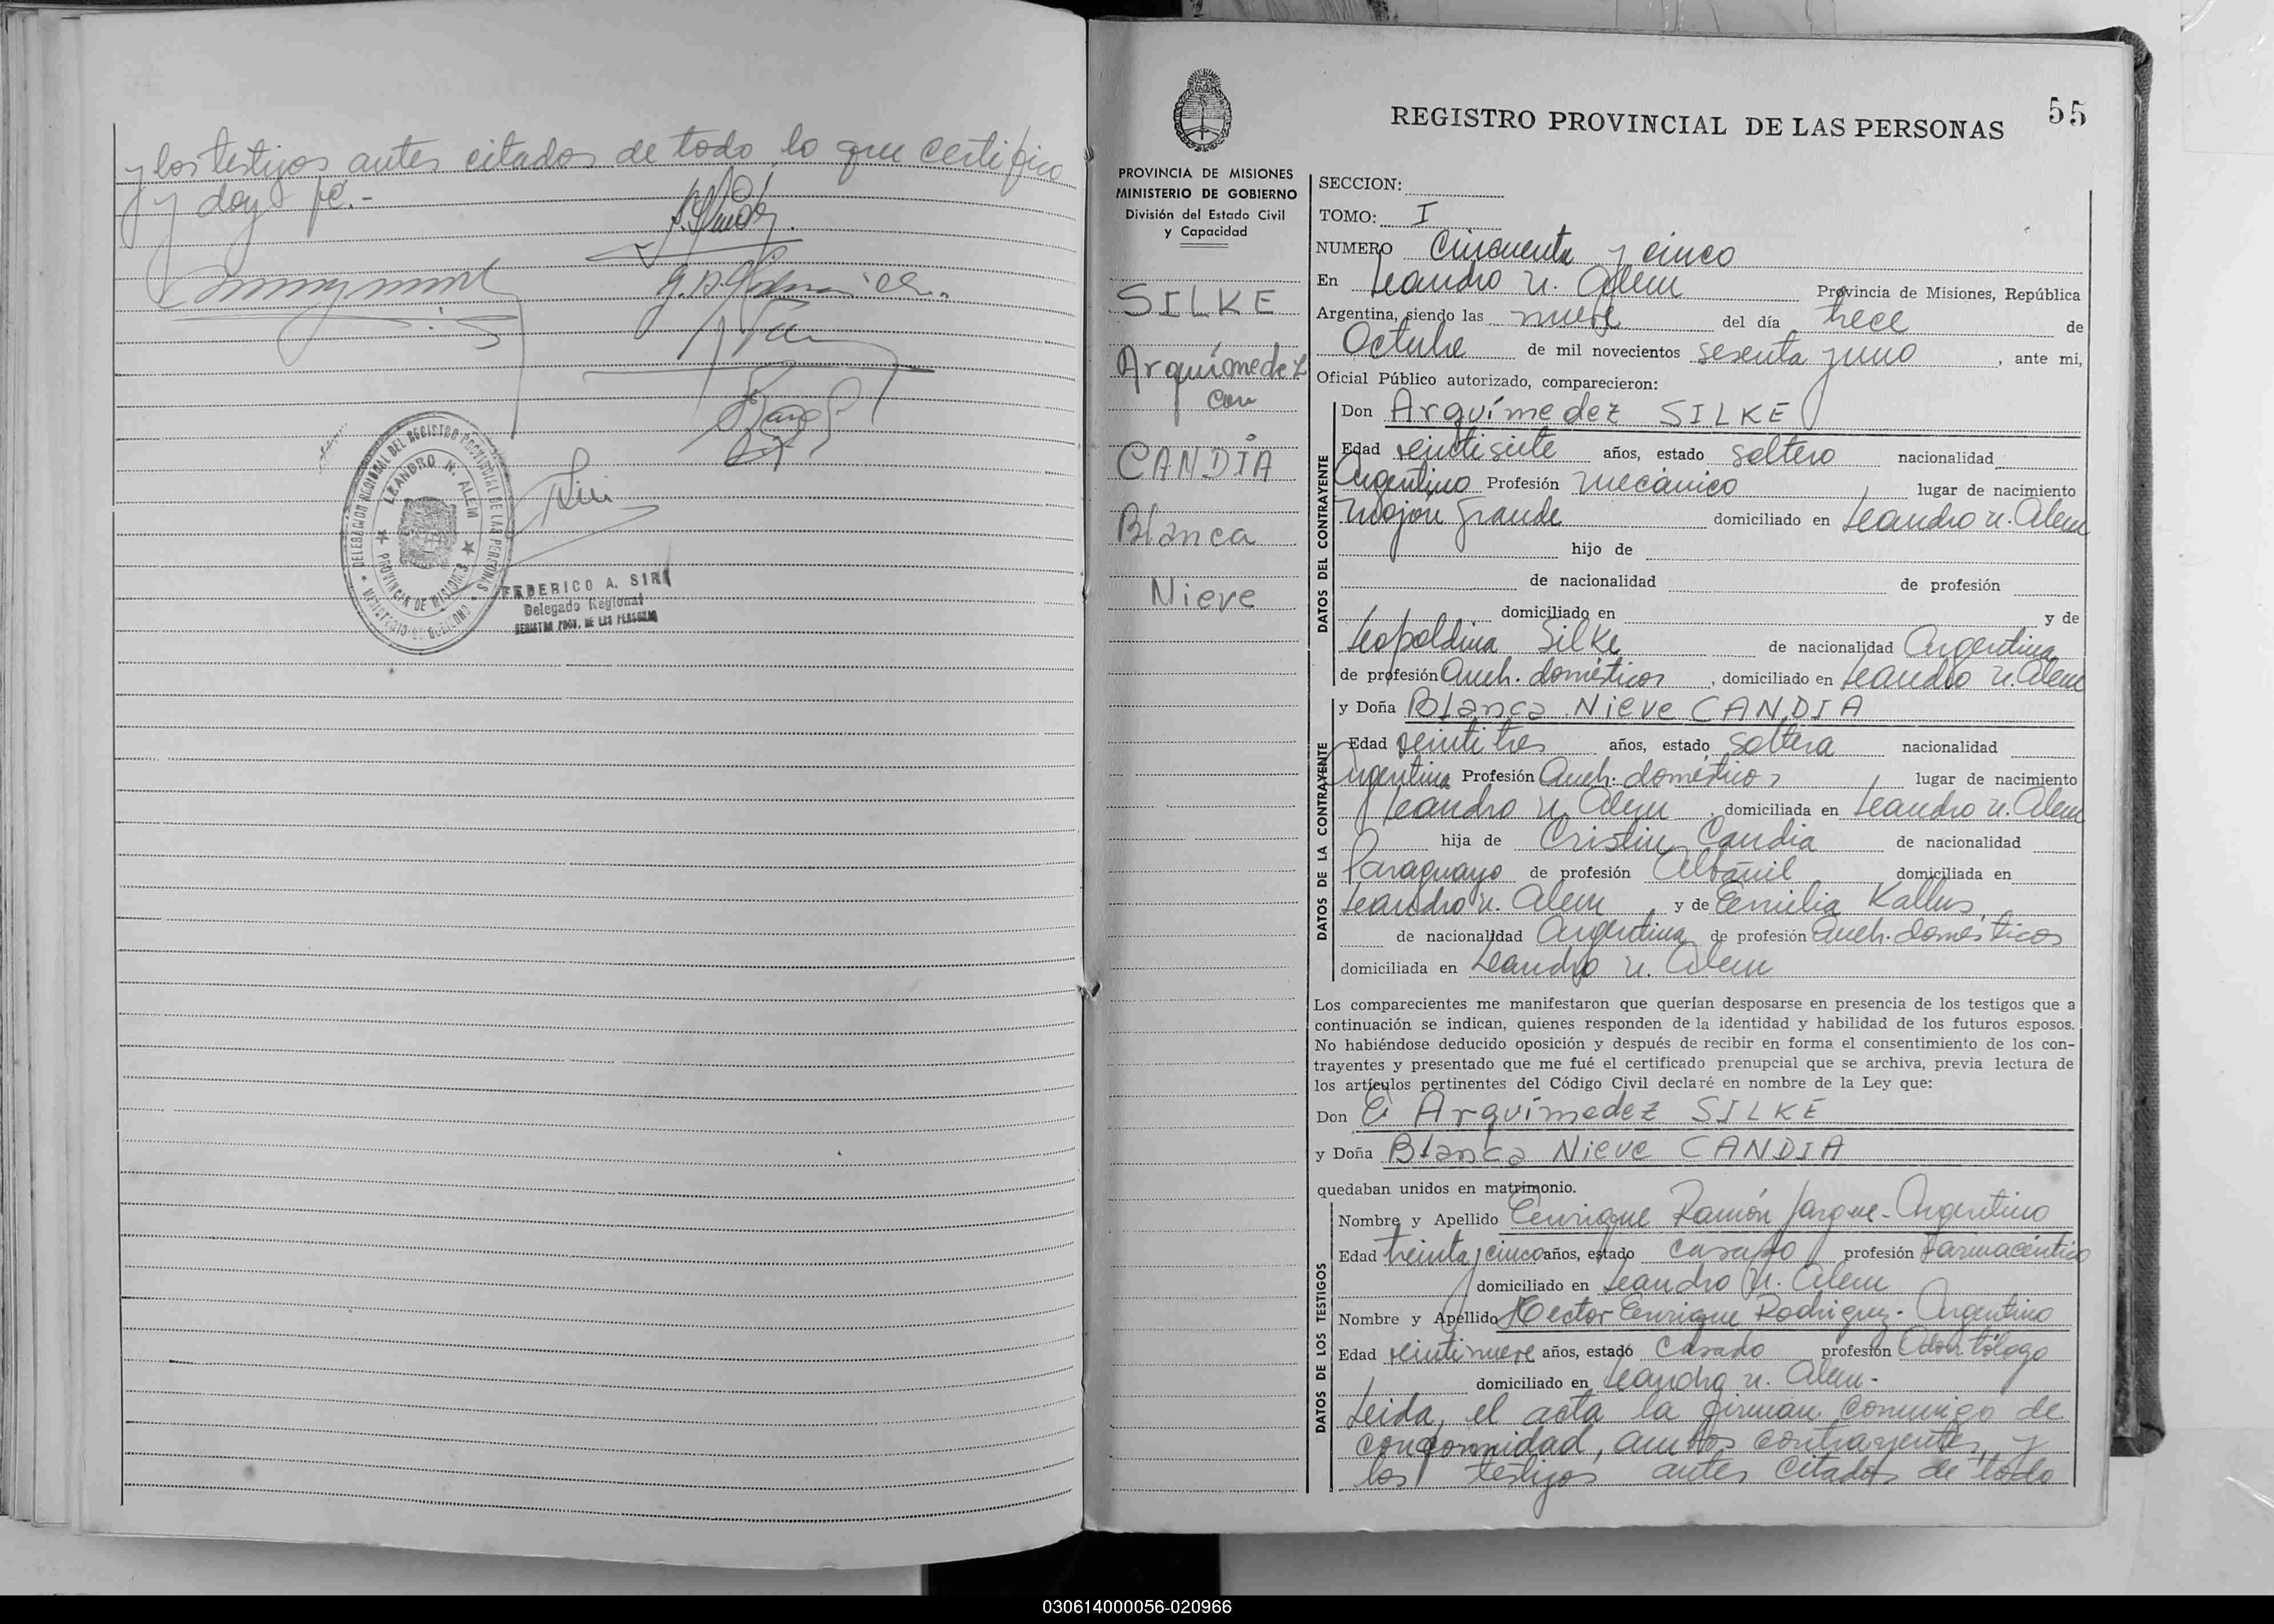 y los testigos antes citados de todo lo que certifico
y doy fé.-
DELEGACION REGIONAL DEL REGISTRO PROVINCIAL DE LAS PERSONAS
LEANDRO N. ALEM
PROVINCIA DE MISIONES
MINISTERIO DE GOBIERNO
FEDERICO A. SIRI
Delegado Regional
REGISTRO PROV. DE LAS PERSONAS
55
REGISTRO PROVINCIAL DE LAS PERSONAS
PROVINCIA DE MISIONES
MINISTERIO DE GOBIERNO
División del Estado Civil
y Capacidad
SILKE
Arquímedez
con
CANDIA
Blanca
Nieve
SECCION:
TOMO: I
NUMERO Cincuenta y cinco
En Leandro N. Alem Provincia de Misiones, República
Argentina, siendo las nueve del día trece de
Octubre de mil novecientos sesenta y uno, ante mi,
Oficial Público autorizado, comparecieron:
DATOS DEL CONTRAYENTE
Don Arquímedez SILKE
Edad veintisiete años, estado soltero nacionalidad
Argentino Profesión mecánico lugar de nacimiento
Mojón Grande domiciliado en Leandro N. Alem
hijo de
de nacionalidad de profesión
domiciliado en y de
Leopoldina Silke de nacionalidad Argentina
de profesión Queh. domésticos, domiciliado en Leandro N. Alem
DATOS DE LA CONTRAYENTE
y Doña Blanca Nieve CANDIA
Edad veintitres años, estado soltera nacionalidad
Argentina Profesión Queh. domésticos lugar de nacimiento
Leandro N. Alem, domiciliada en Leandro N. Alem
hija de Cristin Candia de nacionalidad
Paraguayo de profesión Albañil domiciliada en
Leandro N. Alem y de Emilia Kallus,
de nacionalidad Argentina de profesión Queh. domésticos
domiciliada en Leandro N. Alem
Los comparecientes me manifestaron que querían desposarse en presencia de los testigos que a
continuación se indican, quienes responden de la identidad y habilidad de los futuros esposos.
No habiéndose deducido oposición y después de recibir en forma el consentimiento de los con-
trayentes y presentado que me fué el certificado prenupcial que se archiva, previa lectura de
los artículos pertinentes del Código Civil declaré en nombre de la Ley que:
Don Arquímedez SILKE
y Doña Blanca Nieve CANDIA
quedaban unidos en matrimonio.
DATOS DE LOS TESTIGOS
Nombre y Apellido Enrique Ramón Jarque - Argentino
Edad treinta y cinco años, estado casado profesión Farmacéutico
domiciliado en Leandro N. Alem
Nombre y Apellido Hector Enrique Rodriguez - Argentino
Edad veintinueve años, estado Casado profesión Odontólogo
domiciliado en Leandro N. Alem-
Leida, el acta la firman conmigo de
conformidad, ambos contrayentes, y
los testigos antes citados de todo
030614000056-020966